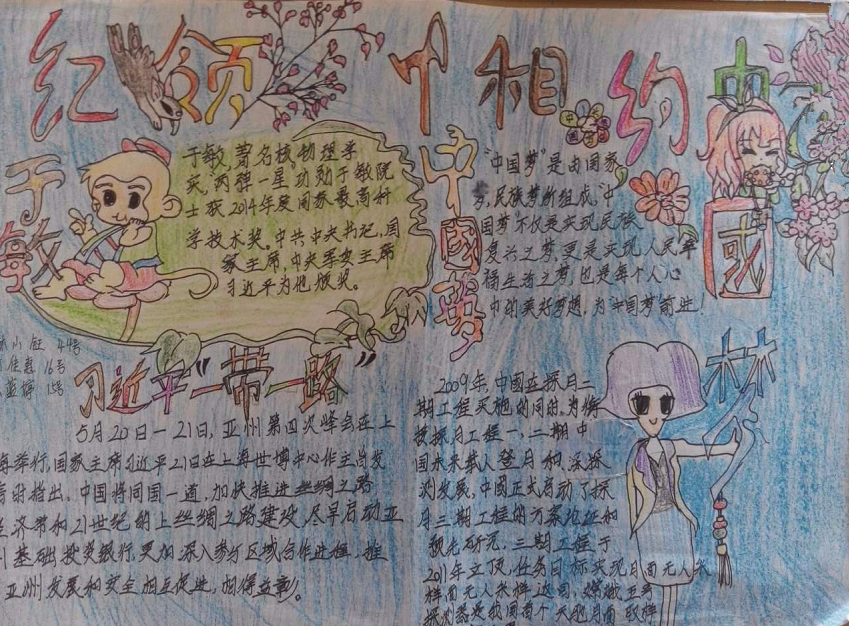 红领巾相约中国
于敏
于敏 著名核物理学
家"两弹一星"功勋于敏院
士获2014年度国家最高科
学技术奖。中共中央书记,国
家主席,中央军委主席
习近平为他颁奖。
中國夢
"中国梦"是由国家
梦,民族梦所组成,"中
国梦不仅是实现民族
复兴之梦,更是实现人民幸
福生活之梦,也是每个人心
中的美好梦想,为"中国梦"前进!
44号
16号
15号
习近平"一带一路"
5月20日一21日,亚洲第四次峰会在上
海举行,国家主席习近平21日在上海世博中心作主旨发
言时指出,中国将同国一道,加快推进丝绸之路
经济带和21世纪的上丝绸之路建设,尽早启动亚
基础投资银行,更加深入参与区域合作进程,推
亚洲发展和安全相互促进,相得益彰。
2009年,中国在探月二
期工程实施的同时,为衔
接探月工程一,二期中
国未来载人登月和深探
测发展,中国正式启动了探
月三期工程的方案论证和
预先研究,三期工程于
2011年立项,任务目标实现月面无人采
样面无人采样返回,嫦娥五号
探测器是我国首个实施月面取样